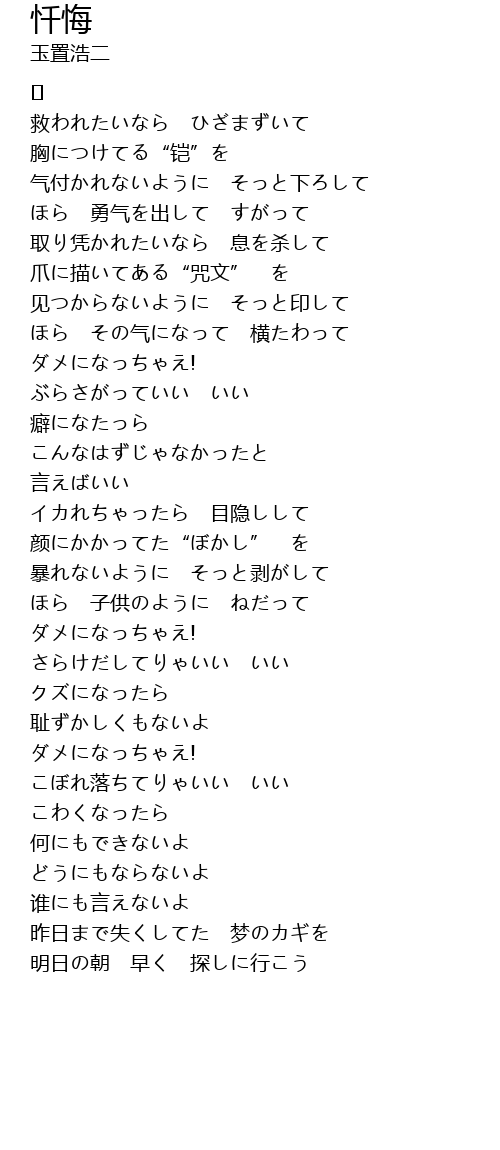 忏悔
玉置浩二
救われたいなら　ひざまずいて
胸につけてる“铠”を
气付かれないように　そっと下ろして
ほら　勇气を出して　すがって
取り凭かれたいなら　息を杀して
爪に描いてある“咒文”　を
见つからないように　そっと印して
ほら　その气になって　横たわって
ダメになっちゃえ!
ぶらさがっていい　いい
癖になたっら
こんなはずじゃなかったと
言えばいい
イカれちゃったら　目隐しして
颜にかかってた“ぼかし”　を
暴れないように　そっと剥がして
ほら　子供のように　ねだって
ダメになっちゃえ!
さらけだしてりゃいい　いい
クズになったら
耻ずかしくもないよ
ダメになっちゃえ!
こぼれ落ちてりゃいい　いい
こわくなったら
何にもできないよ
どうにもならないよ
谁にも言えないよ
昨日まで失くしてた　梦のカギを
明日の朝　早く　探しに行こう